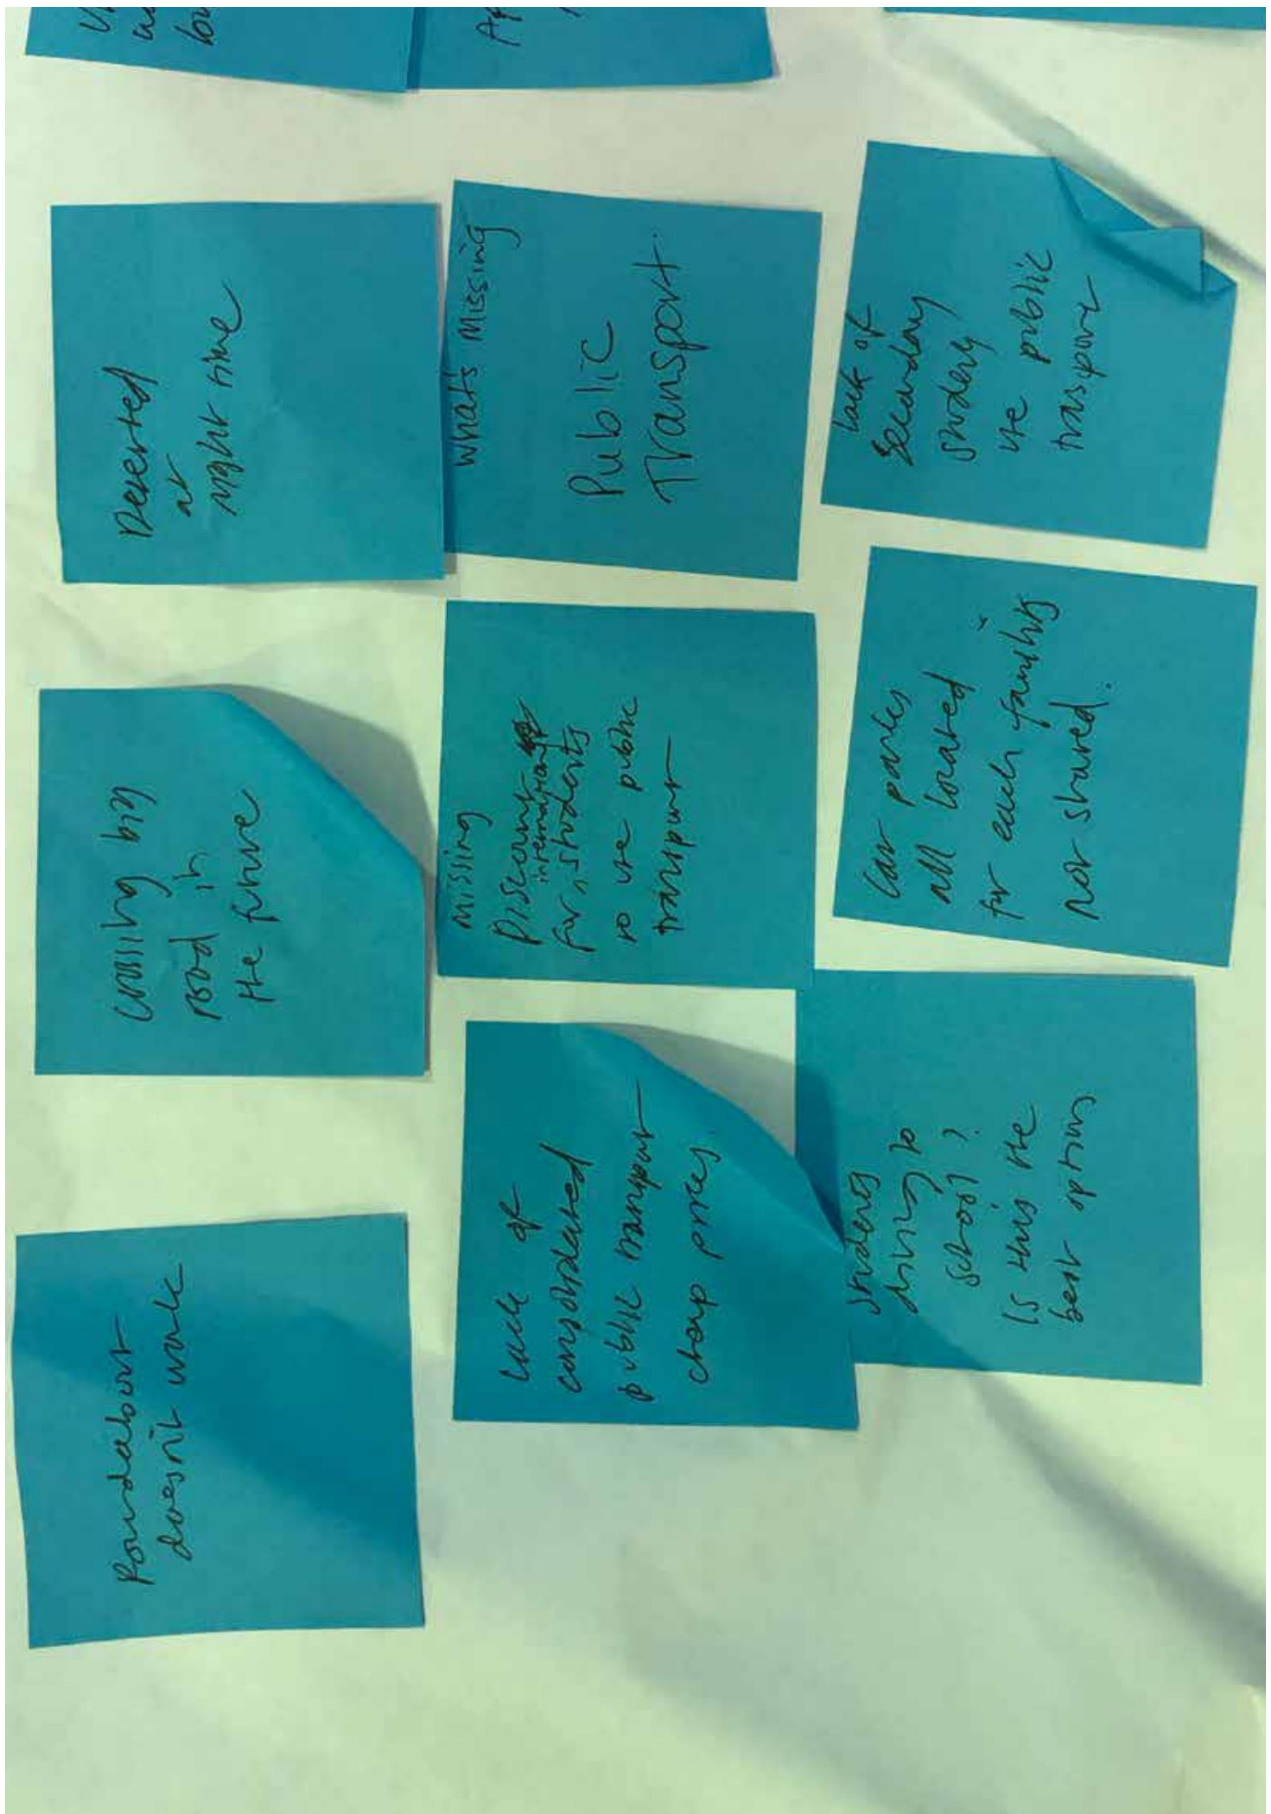 Roundabout
doesn't work
Crossing big
road in
the future
Deserted
at
night time
Lack of
consolidated
public transport
cheap prices.
Missing
Discount
international
for students
to use public
transport
What's Missing
Public
Transport
Students
driving to
school?
Is this the
best options
Car parks
all located
for each facility
not shared.
Lack of
Secondary
students
use public
transport